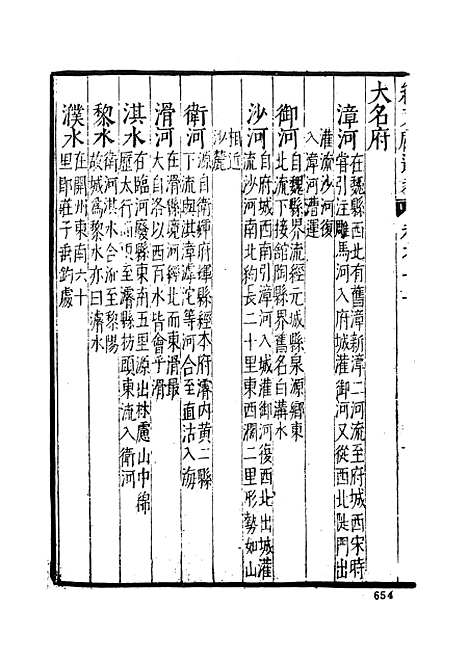 大名府
漳河
在魏縣西北有舊漳新漳二河流至府城西宋時
嘗引注雕馬河入府城灌御河又從西北陡門出
灌流沙河復
入漳河漕運
御河
自魏縣界流經元城縣泉源鄉東
北流下接館陶縣界舊名白溝水
沙河
自府城西南引漳河入城灌御河復西北出城灌
流沙河南北約長二十里東西濶二里形勢如山
相近
沙麓
衛河
源自衛輝府輝縣經本府濬内黄二縣
下流與淇漳滹沱等河合至直沽入海
滑河
在滑縣河經北而東滑最
大自洛以西百水皆會乎滑
淇水
在臨河廢縣東南五里源出林慮山中綿
歷太行而至濬縣枋頭東流入衛河
黎水
衛河淇水合流至黎陽
故城為黎水亦曰濬水
濮水
在開州東南六十
里即莊子垂釣處
654